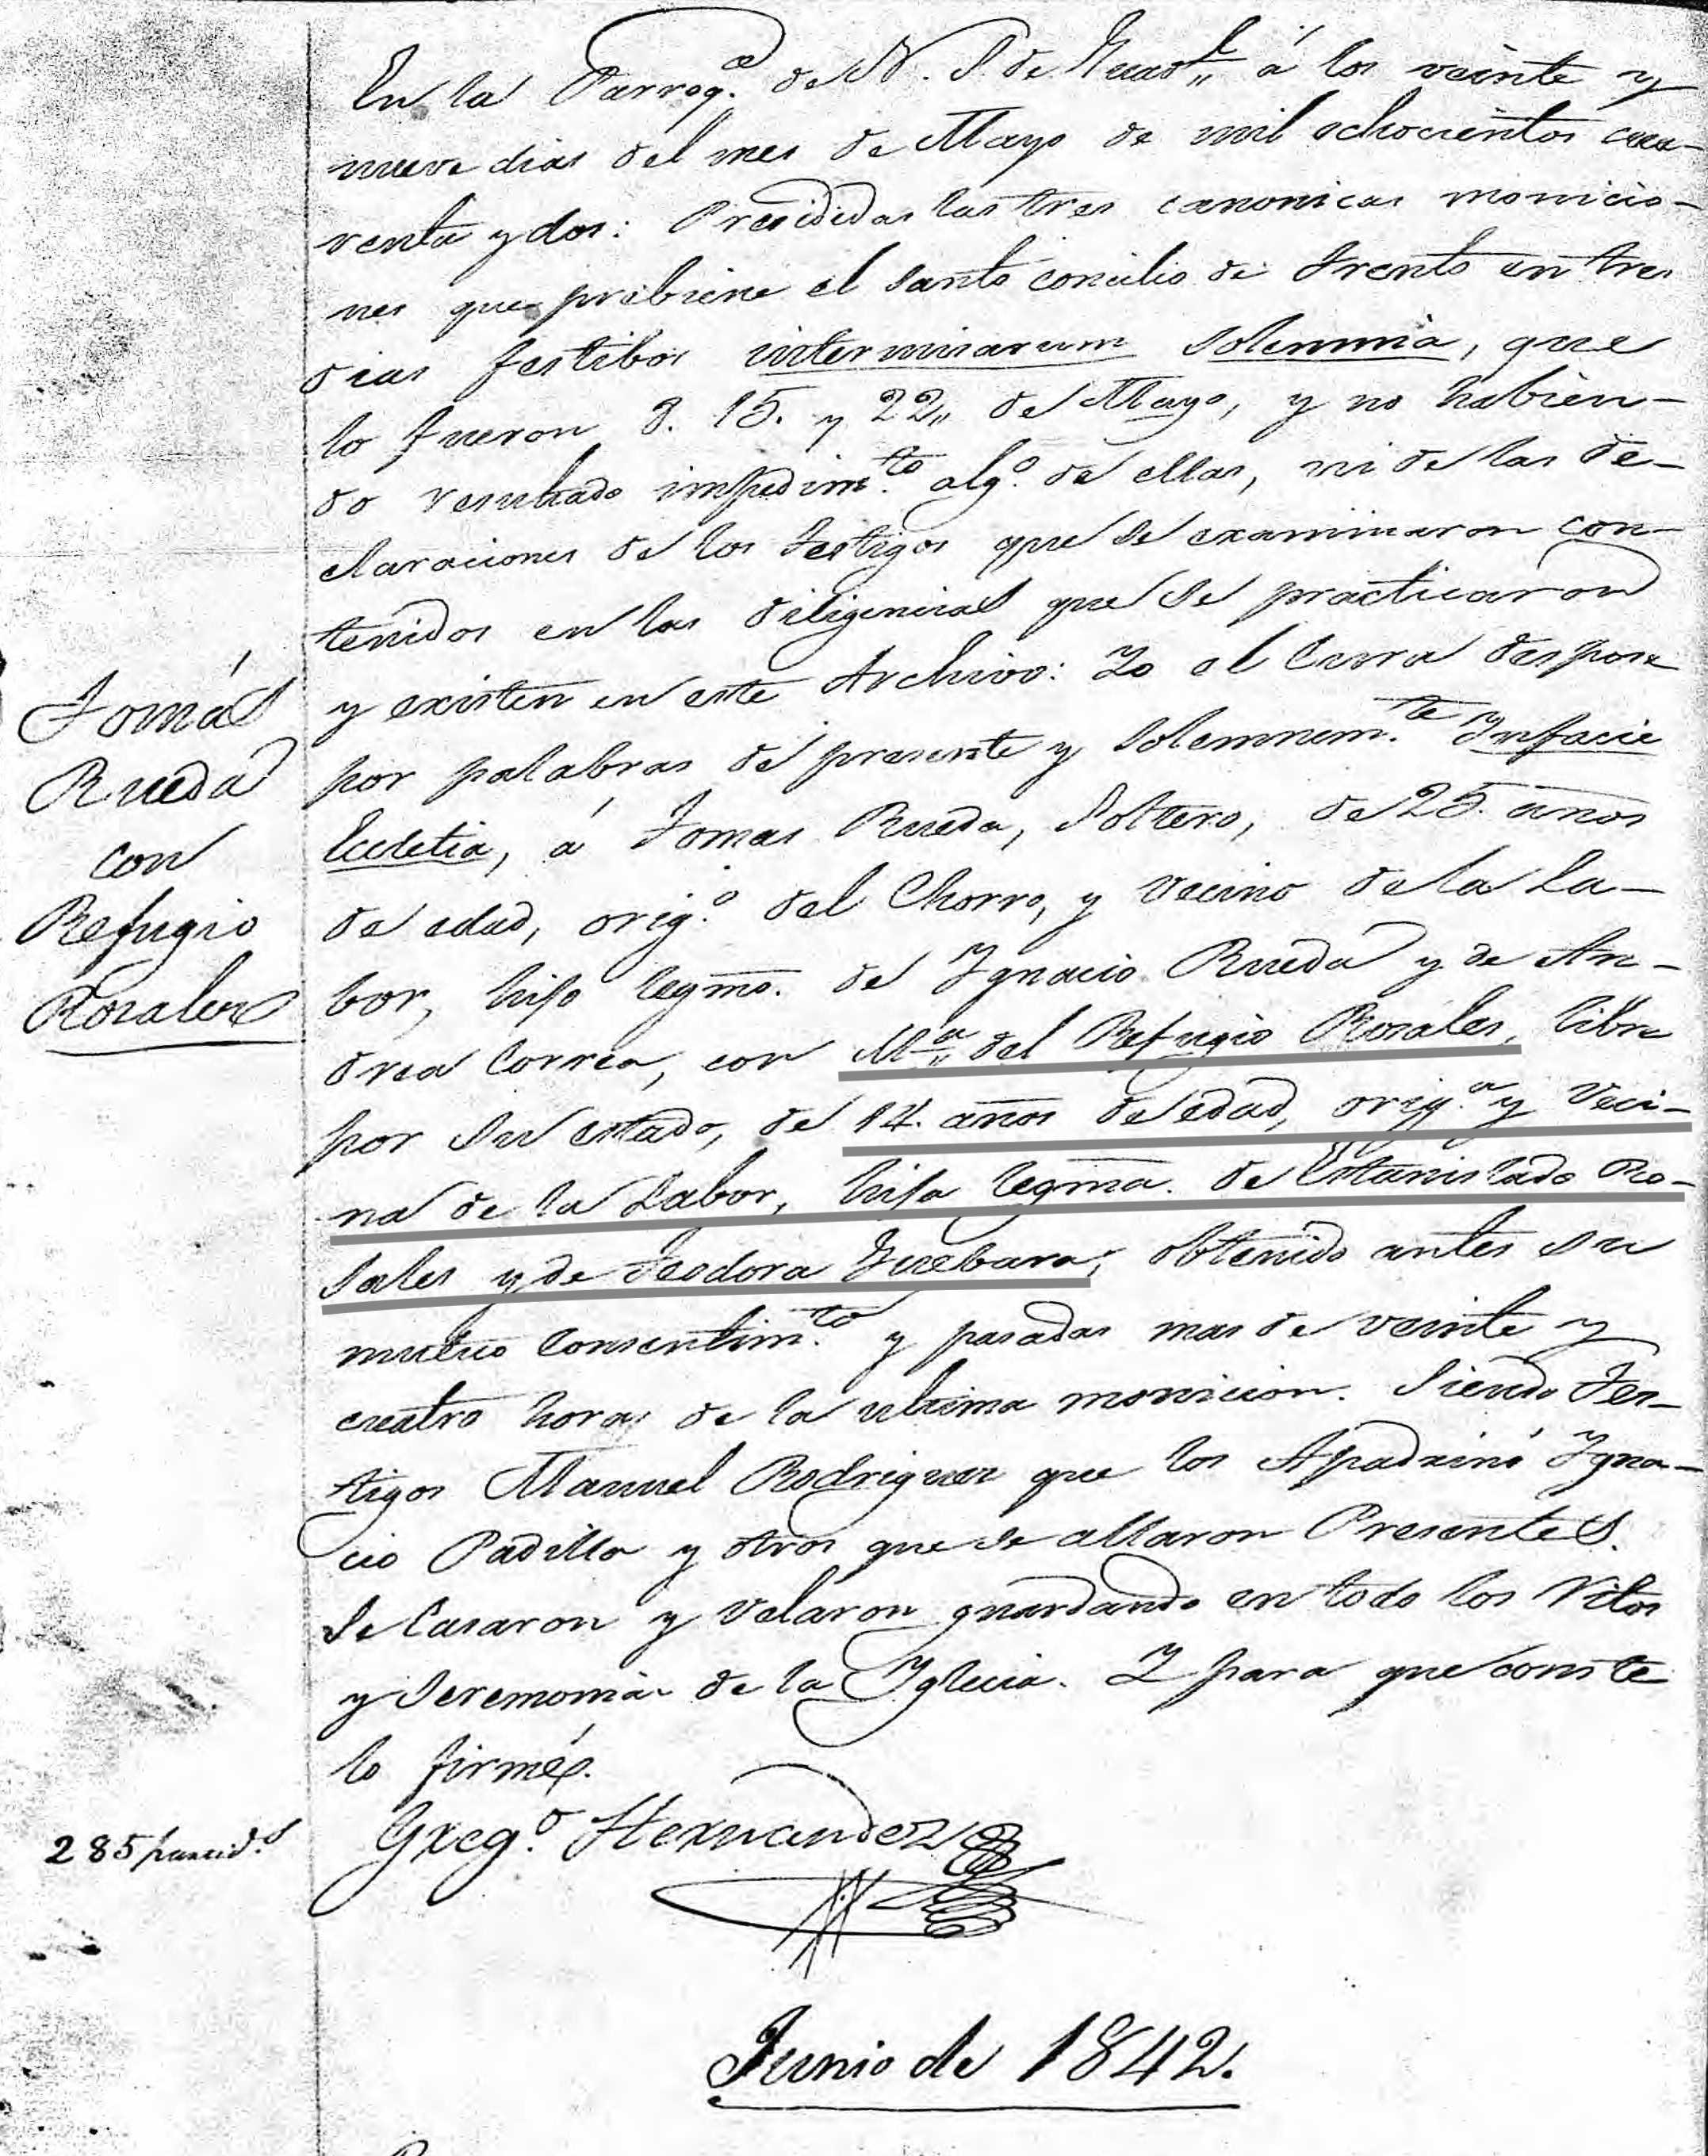 En la Parroq.ª de N. S. de Guad.l á los veinte y
nueve dias del mes de Mayo de mil ochocientos cua-
renta y dos: Presedidas las tres canonicas monicio-
nes que prebiene el Santo concilio de Trento en tres
dias festibos intermisarum Solemnia, que
lo fueron 8. 15. y 22,, de Mayo, y no habien-
do resultado impedim.to alg.º de ellas, ni de las de-
claraciones de los testigos que se examinaron con-
tenidos en las diligencias que se practicaron
y existen en este Archivo: Yo el Cura despose
por palabras de presente y solemnem.te Infacie
Eccletia, á Tomas Rueda, Soltero, de 25. años
de edad, orig.º del Chorro, y vecino de la La-
bor, hijo legmo. de Ygnacio Rueda y de An-
drea Correa, con M.ª del Refugio Rosales, libre
por su estado, de 14. años de edad, orig.ª y veci-
na de la Labor, hija legma. de Estanislado Ro-
sales y de Teodora Guebara, obtenido antes su
mutuo consentim.to y pasadas mas de veinte y
cuatro horas de la ultima monicion. Siendo tes-
tigos Manuel Rodriguez que los Apadrinó Ygna-
cio Padilla y otros que se allaron Presentes.
Se Casaron y Velaron guardando en todo los Ritos
y Seremonias de la Yglecia. Y para que conste
lo firmé.
Greg.º Hernandez
Tomás
Rueda
con
Refugio
Rosales
285 parcid.s
Junio de 1842.